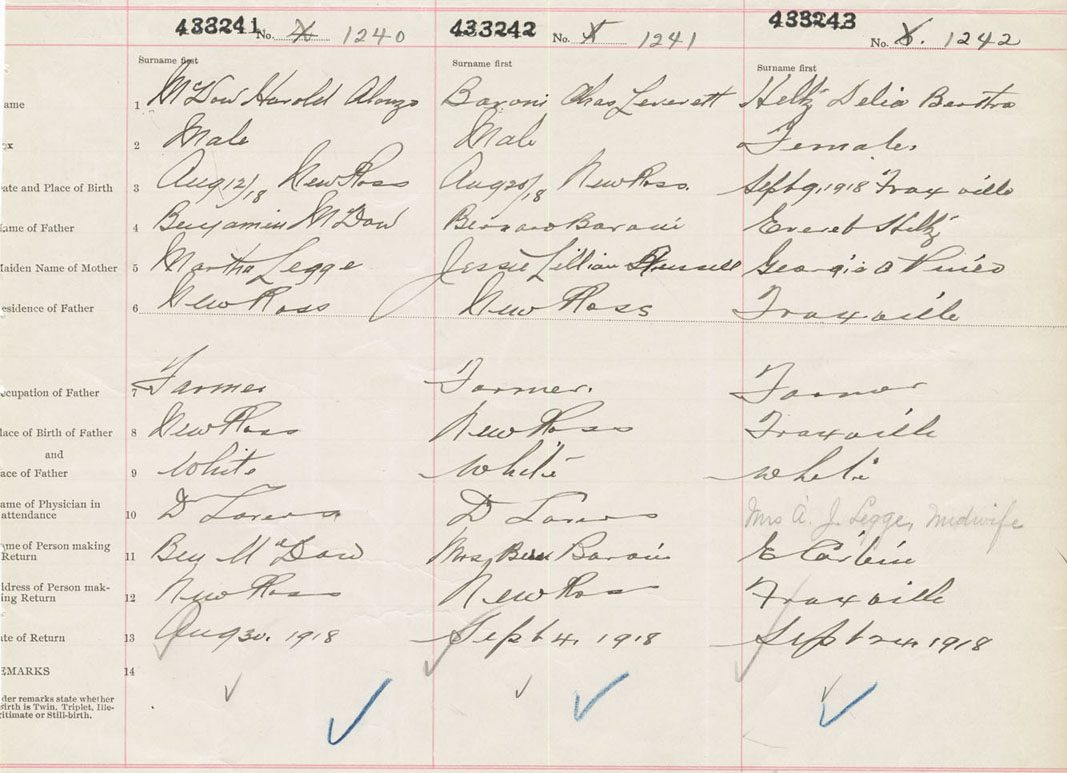 433241 No. X 1240 433242 No. X 1241 433243 No. X. 1242
Surname first Surname first Surname first
ame 1 McDow Harold Alonzo Baroni Chas Leverett Hiltz Delia Bertha
x 2 Male Male Female.
ate and Place of Birth 3 Aug 12/18 New Ross Aug 20/18 New Ross. Sept 9, 1918 Fraxville
ame of Father 4 Benjamin McDow Bernard Baroni Everet Hiltz
aiden Name of Mother 5 Martha Legge Jessie Lillian Russell Georgia
esidence of Father 6 New Ross New Ross Fraxville
ccupation of Father 7 Farmer Farmer. Farmer
lace of Birth of Father 8 New Ross New Ross Fraxville
and
ace of Father 9 White White White
ame of Physician in attendance 10 D D Mrs A. J. Legge, Midwife
me of Person making Return 11 Ben McDow Mrs Baroni E Corbin
ddress of Person mak-ing Return 12 New Ross New Ross Fraxville
te of Return 13 Aug 30. 1918 Sept 4. 1918 Sept 24. 1918
EMARKS 14
der remarks state whether
irth is Twin, Triplet, Ille-
itimate or Still-birth.